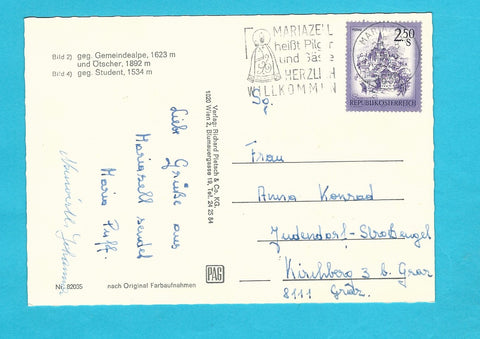 Bild 2) geg. Gemeindealpe, 1623 m
und Ötscher, 1892 m
Bild 4) geg. Student, 1534 m
MARIAZELL
heißt Pilger
und Gäste
HERZLICH
WILLKOMMEN
2.50
S
REPUBLIK ÖSTERREICH
Liebe Grüße aus
Mariazell sendet
Maria Puff.
Johanna
Verlag: Richard Pietsch & Co. KG.
1020 Wien 2, Blumauergasse 19, Tel. 24 25 84
Sg.
Frau
Anna Konrad
Judendorf-Straßengel
Kirchberg 3 b. Graz
8111 Graz.
Nr. 82035
nach Original Farbaufnahmen
PAG